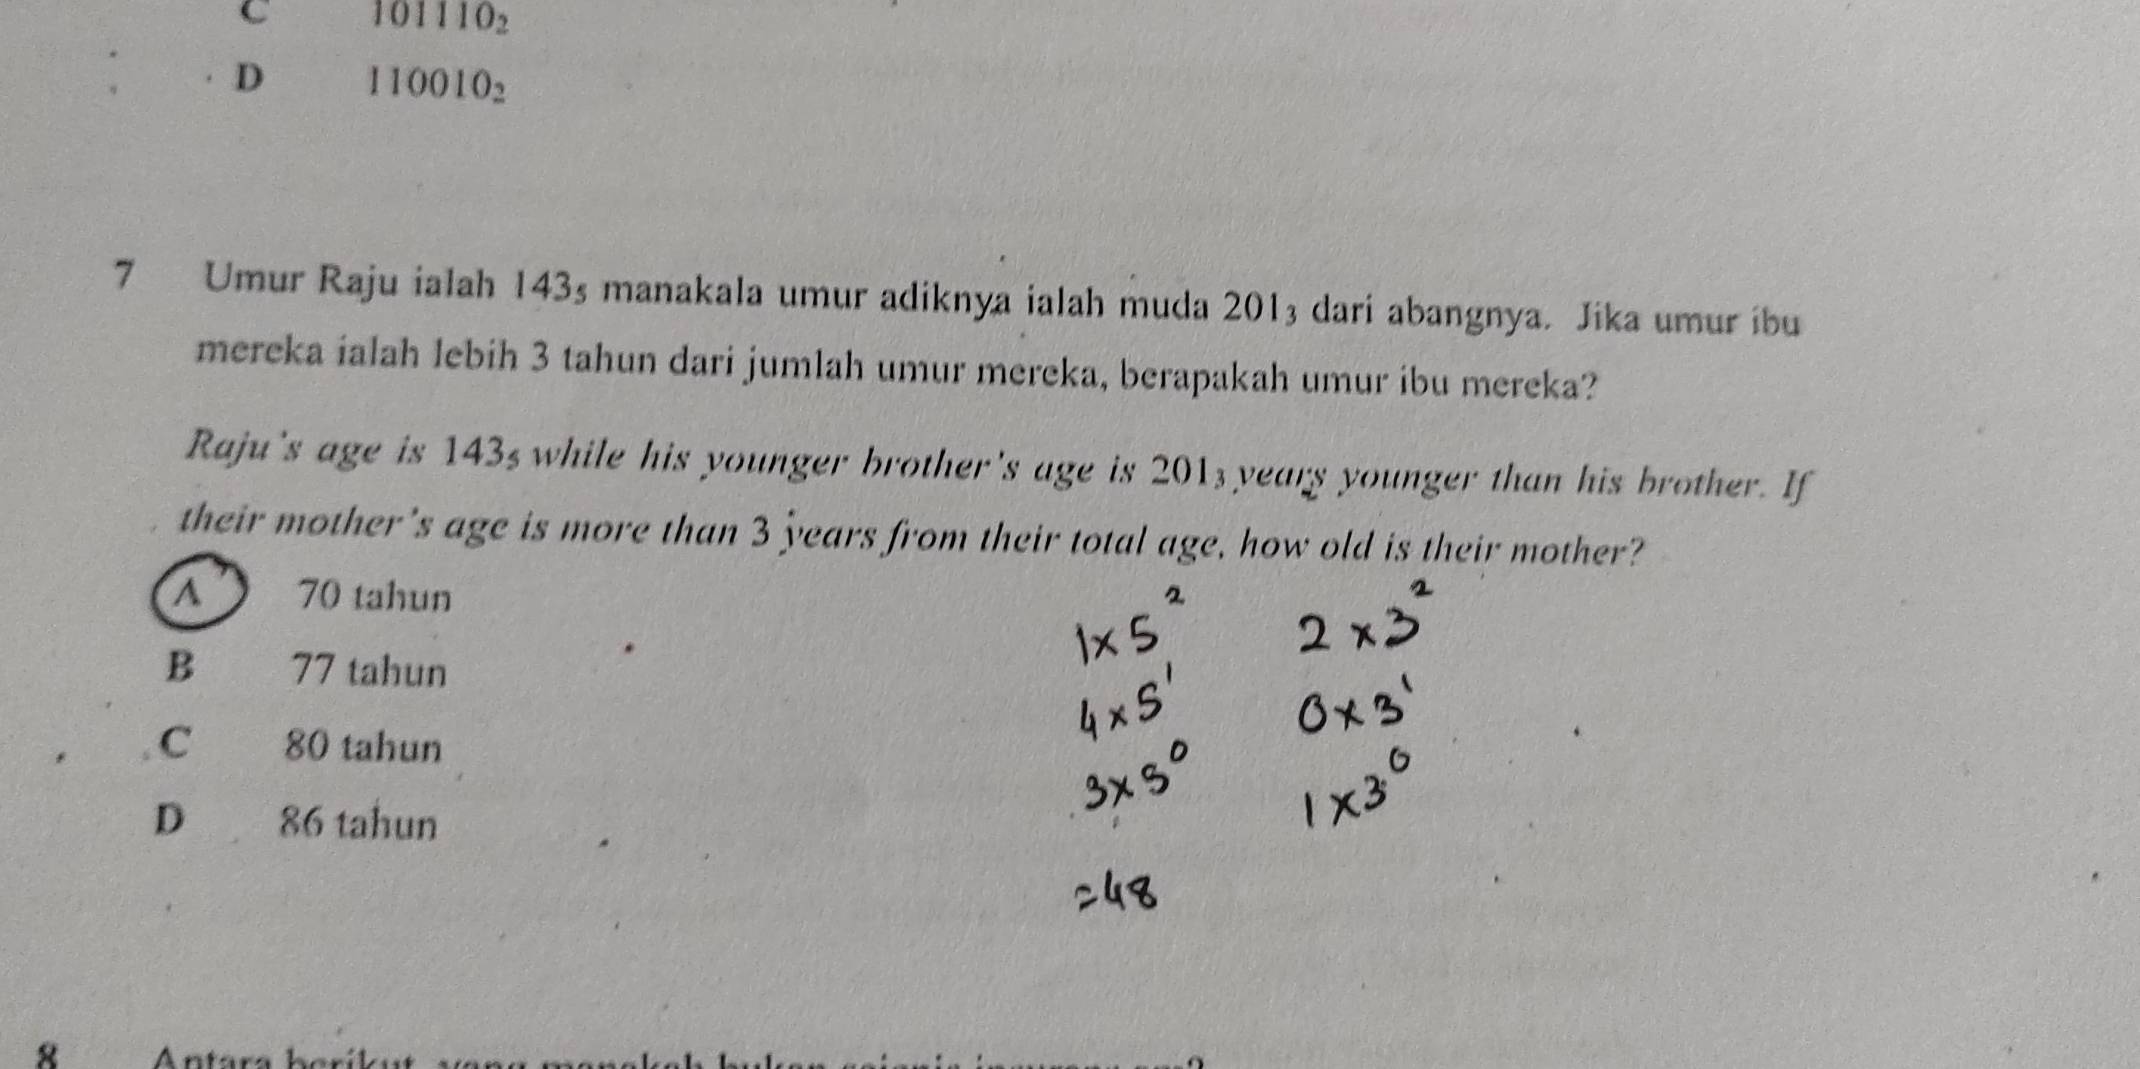 C 101110₂
D 110010₂
7 Umur Raju ialah 143₅ manakala umur adiknya ialah muda 201₃ dari abangnya. Jika umur ibu
mereka ialah lebih 3 tahun dari jumlah umur mereka, berapakah umur ibu mereka?
Raju's age is 143₅ while his younger brother's age is 201₃ years younger than his brother. If
their mother's age is more than 3 years from their total age, how old is their mother?
A 70 tahun
B 77 tahun
C 80 tahun
D 86 tahun
1×5² 2×3²
4×5¹ 0×3¹
3×5⁰ 1×3⁰
=48
8 Antara berikut, yang manakah bukan